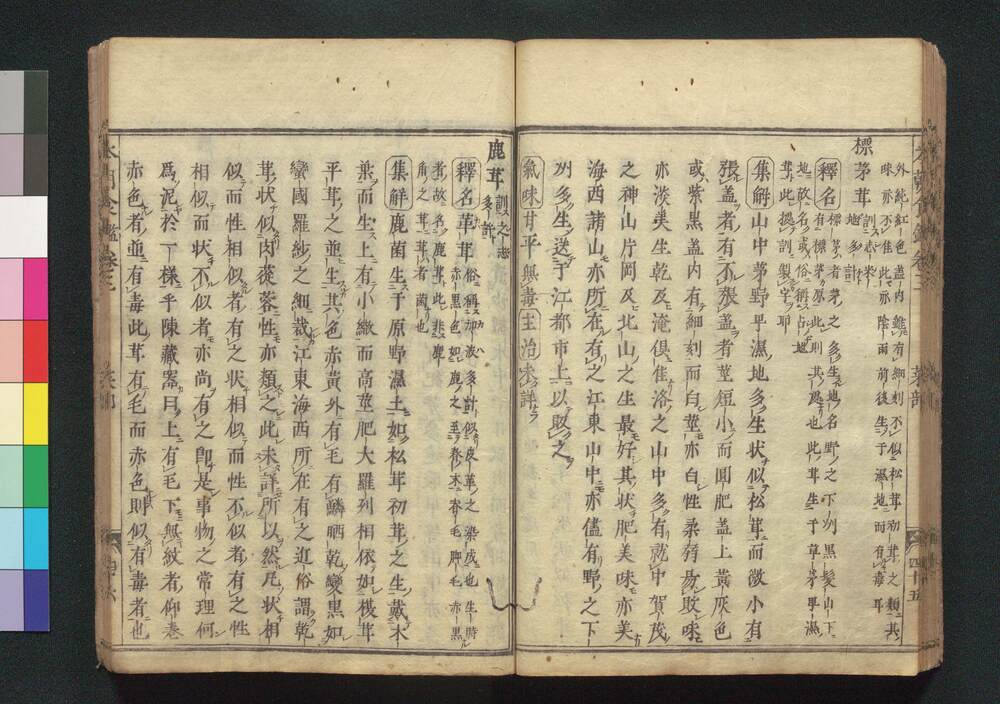 外純紅色盖内雖有細刻不似松茸初茸之類其
味亦不佳此亦陰雨前後生于濕地而有毒耳
標茅茸訓志米地多計
釋名有標茅者茅之多生地名野之下州黒髮山下
標茅原此則其處也此茸生于草茅卑濕
地故名或俗稱占地
茸此據訓製字耶
集解山中茅野卑濕地多生状似松茸而微小有
張盖者有不張盖者莖短小而圓肥盖上黃灰色
或紫黑盖内有細刻而白莖亦白性柔脃易敗味
亦淡美生乾及淹俱佳洛之山中多有就中賀茂
之神山片岡及北山之生最好其状肥美味亦美
海西諸山亦所在有之江東山中亦儘有野之下
州多生送于江都市上以販之
氣味甘平無毒主治未詳
鹿茸訓之志多計
釋名革茸俗稱加波多計似皮革之染成也生時
赤黒色如鹿之至春末呑毛脚毛赤黒
者故名鹿茸此非鹿
角之茸茸者菌也
集解鹿菌生于原野濕土如松茸初茸之生戴木
葉而生上有小繖而高莖肥大羅列相依如栈茸
平茸之並生其色赤黃外有毛有鱗晒乾變黒如
蠻國羅紗之細裁江東海西所在有之近俗謂乾
茸状似肉蓯蓉性亦類之此未詳所以然凡状相
似而性相似者有之状相似而性不似者有之性
相似而状不似者亦尚有之卽是事物之常理何
爲泥於一様乎陳藏器曰上有毛下無紋者仰巻
赤色者並有毒此茸有毛而赤色則似有毒者也
四十五